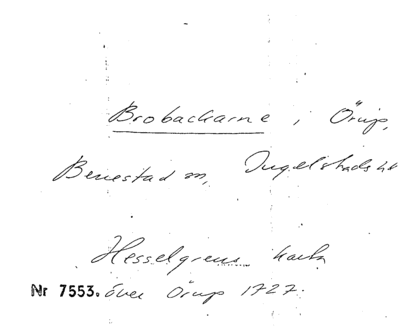 Brobackarne, i Örup,
Benestad m, Ingelstads hd
Hesselgrens karta
Nr 7553. över Örup 1727.